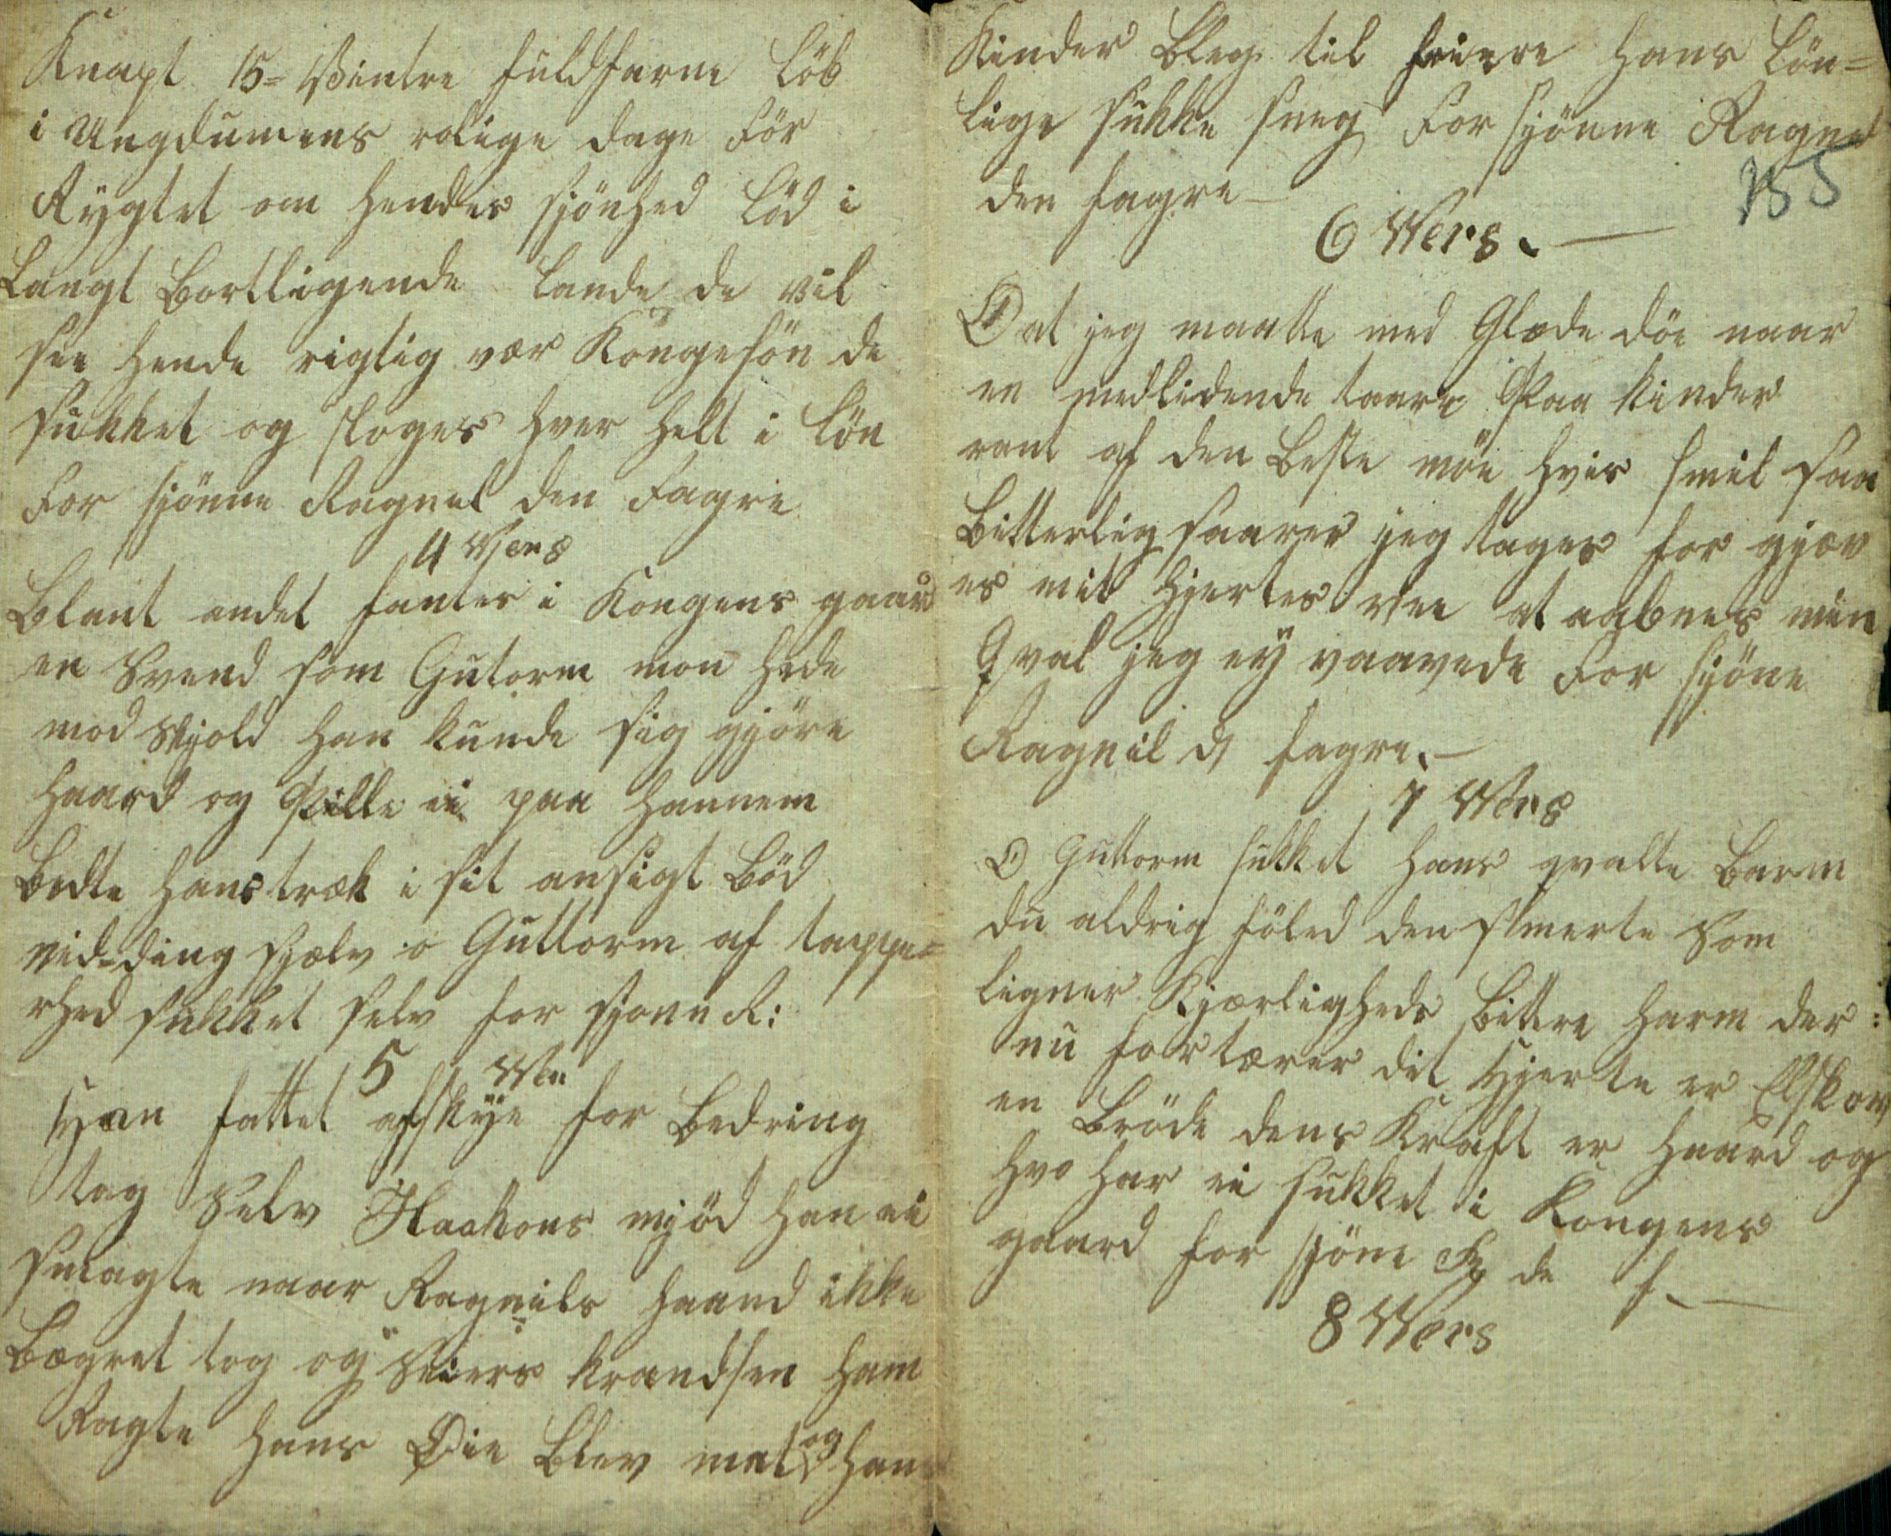 Knapt 15= Vintre fuldfarne löb
i Ungdumens rolige dage för
Rygtet om hendes skjönhed löd i
Langt Bortligende Lande de vil
see hende rigtig vær Kongesön de
sukket og sloges hver helt i lön
for skjönne Ragnel den Fagre
4 Vers
Blant andet fantes i Kongens gaard
en Svend som Gutorm mon hede
mod Skjold han kunde sig gjöre
haard og Pille ei paa hannem
Bedte hans træk i sit ansigt Böd
nid=ding skjælv o Guttorm af tappe=
rhed sukket selv for skjönn R:
5 Ven
Han fattet afskye for Bedring
tog Selv Haakons mjöd han ei
smagte naar Ragnils haand ikke
Bægret tog og Seiers krandsen ham
Ragte hans Øie Blev mat og han
Kinder Bleg til hans Lön=
lige sukke sneg For skjönne Ragnel
den fagre —
155
6 Vers. —
O at jeg maatte med Glæde döe naar
en medlidende taare Paa Kinder
rant af den Beste möe hvis smil saa
Bitterlig saarer jeg tages for gjæv
es mit Hjertes vee at aabnes min
Qval jeg ey vaavede For skjöne
Ragnil d fagre. —
7 Vers
O Guttorm sukket hans qvalte Barm
du aldrig föled den smerte Som
ligner Kjærligheds bittre harm der:
nu fortærer dit Hjerte er Elskov
en Bröde dens Kraft er haard og
hvo har ei sukket i Kongens
gaard for skjöne R de f. —
8 Vers